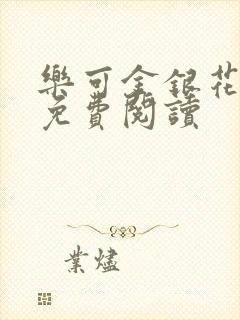 樂可金銀花
免費閱讀
業燼